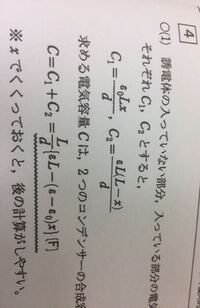 4
○(1) 誘電体の入っていない部分，入っている部分の電
それぞれ C₁，C₂ とすると，
C₁＝ε₀Lx/d，C₂＝εL(L－x)/d
求める電気容量 C は，2つのコンデンサーの合成
C＝C₁＋C₂＝L/d{εL－(ε－ε₀)x}[F]
※ x でくくっておくと，後の計算がしやすい。